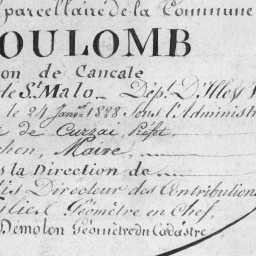 parcellaire de la Commune
OULOMB
on de Cancale
de St. Malo_ Dépt. D'Ille & V
le 24 Janer. 1828 sous l'Administr
de Curzai, Préfet,
chen, Maire,
s la Direction de
is Directeur des Contribution
Géomètre en Chef,
Demolon Géomètre du Cadastre